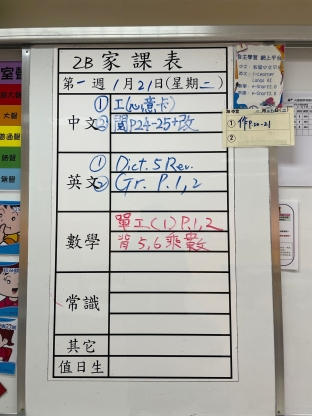 2B家課表
第一週1月21日(星期二)
中文
①工(心意卡)
②閱P24-25+改
英文
①Dict.5 Rev.
②Gr. P.1,2
數學
單工(1)P.1,2
背5,6乘數
常識
其它
值日生
自主學習 網上平台
①作P.20-21
②